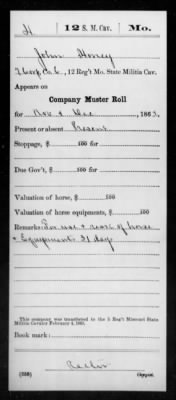 H 12 S. M. Cav. Mo.
John Honey
12 Reg't Mo. State Militia Cav.
Appears on
Company Muster Roll
for Nov & Dec, 1863.
Present or absent Present
Stoppage, $ 100
Due Gov't, $ 100
Valuation of horse, $ 100
Valuation of horse equipments, $ 100
Remarks: For use & of horse
& Equipments 31 days
This company was transferred to the 5 Reg't Missouri State
Militia Cavalry February 4, 1863.
Book mark:
(358) Copyist.